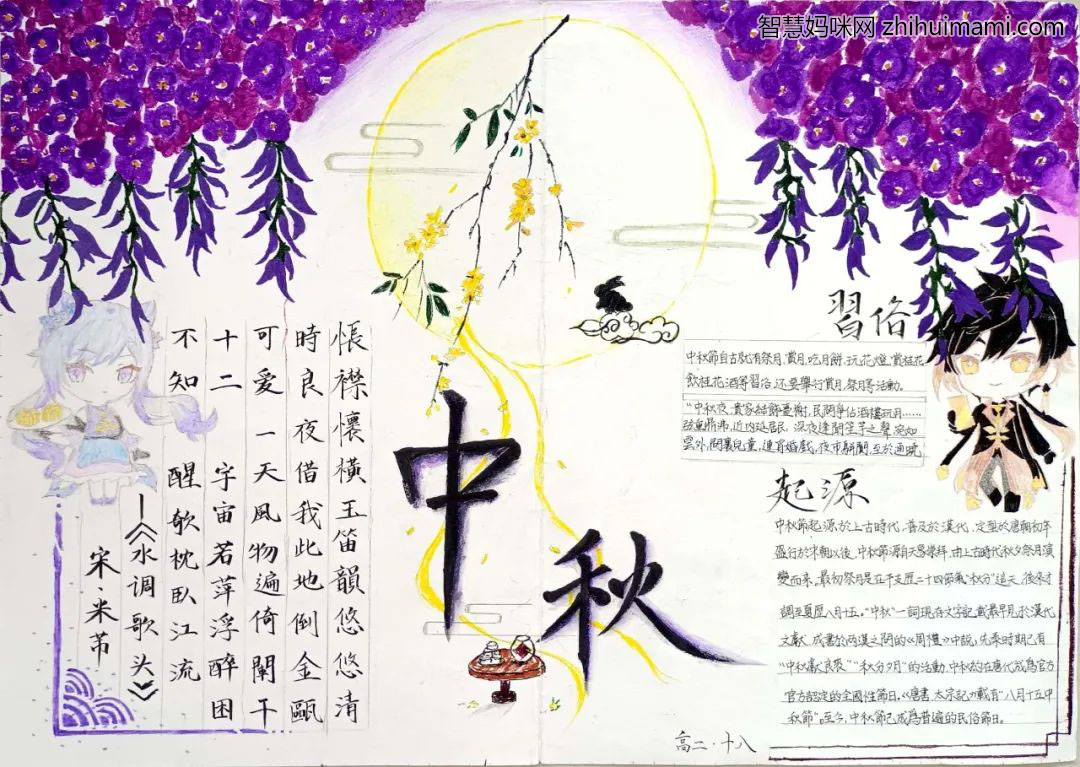 智慧妈咪网 zhihuimami.com
中
秋
悵襟懷橫玉笛韻悠悠清
時良夜借我此地倒金甌
可愛一天風物遍倚闌干
十二 宇宙若萍浮醉困
不知 醒欹枕臥江流
—《水调歌头》
宋·米芾
習俗
中秋節自古就有祭月,賞月,吃月餅,玩花燈,賞桂花
飲桂花酒等習俗,还要舉行賞月,祭月等活動。
“中秋夜,貴家結飾臺榭,民間爭佔酒樓玩月……
鼎沸,近內延居民,深夜逢聞笙竽之聲,宛如
雲外,閭裏兒童,連宵婚戲,夜市駢闐,至於通曉
起源
中秋節起源於上古時代,普及於漢代,定型於唐朝初年
盛行於宋朝以後。中秋節源自天象崇拜,由上古時代秋夕祭月演
變而來。最初祭月是在干支歷二十四節氣“秋分”這天,後來才
調至夏歷八月十五。“中秋”一詞現存文字記載最早見於漢代
文獻,成書於兩漢之間的《周禮》中說,先秦時期已有
“中秋獻良裘”“秋分夕月”的活動。中秋於在唐代成爲官方
官方認定的全國性節日。《唐書 太宗記》載有“八月十五中
秋節”。至今,中秋節已成爲普遍的民俗節日。
高二·十八